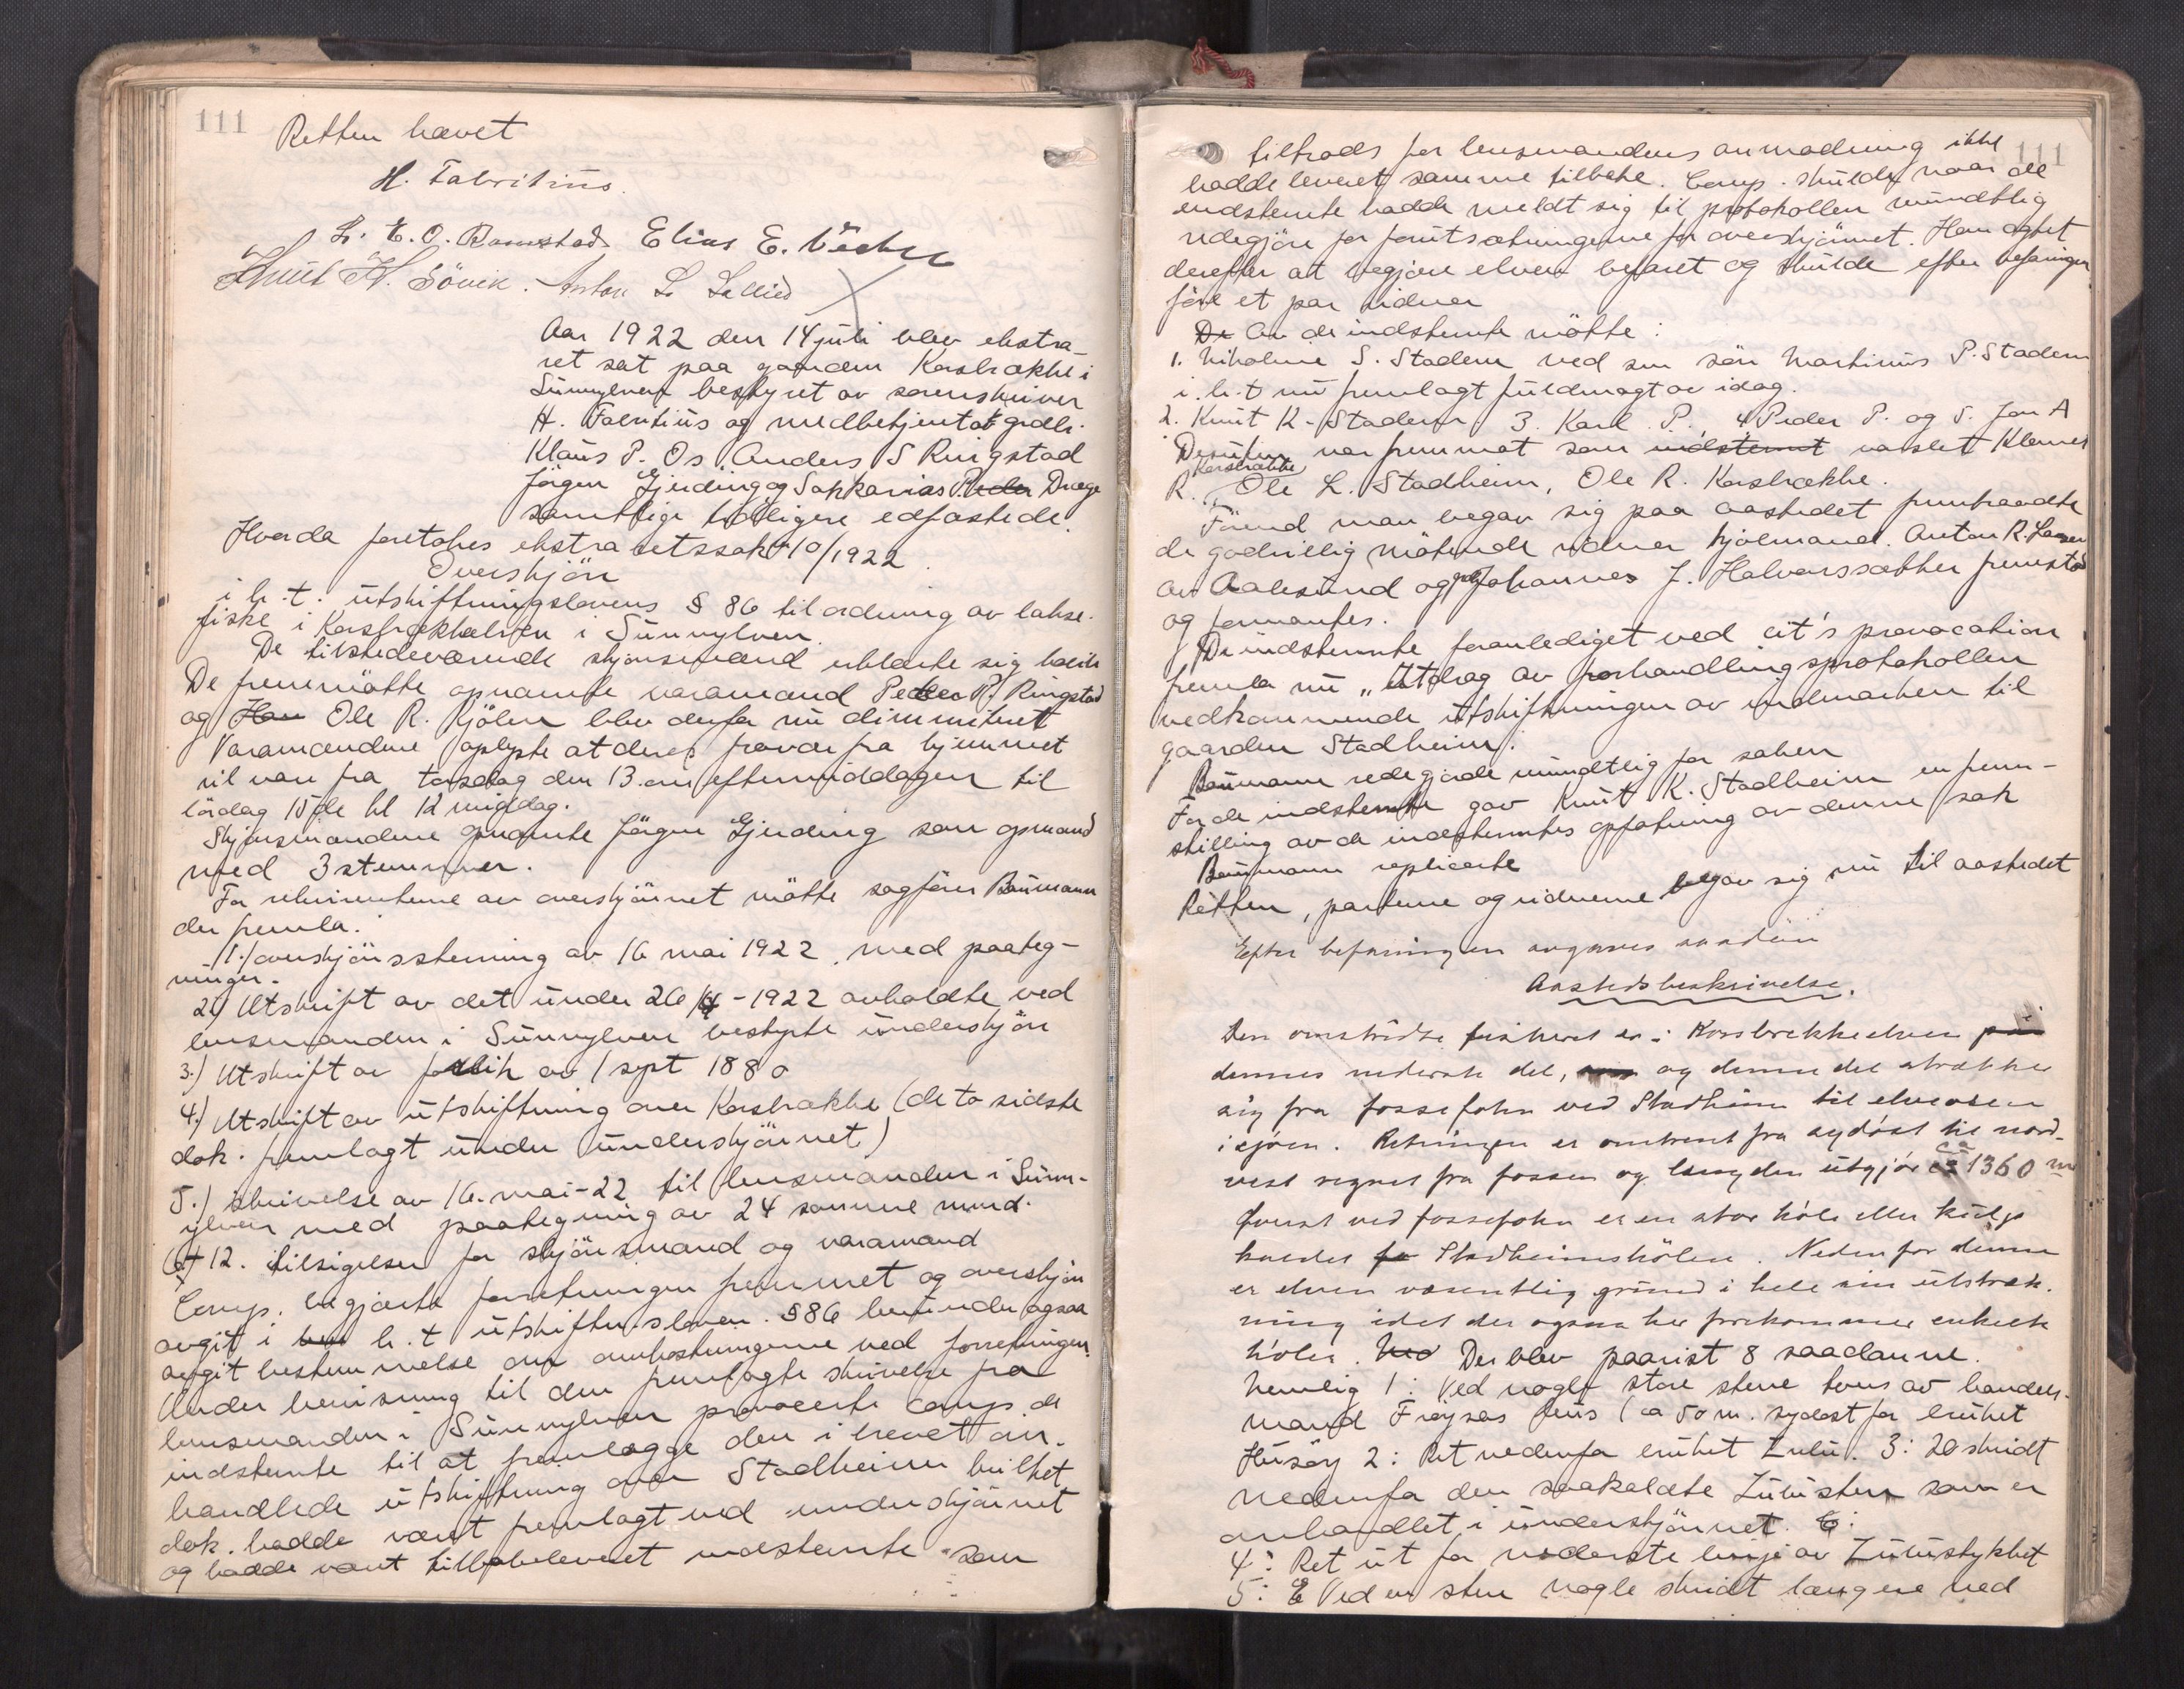 111
Retten hævet
H. Fabritius.
L. E. O. Elias E.
Knut K. Søvik. Anton L.
Aar 1922 den 14 juli blev ekstra-
ret sat paa gaarden Korsbrække i
Sunnylven bestyret av sorenskriver
H. Fabritius og medbetjentet av grdbr.
Klaus P. Os Anders S Ringstad
Jørgen Gjerding og Sakkarias Peder Drage
samtlige tidligere edfæstede.
Hvorda foretokes ekstraretssak 10/1922.
Overskjøn
i h.t. utskiftningslovens § 86 til ordning av lakse-
fiske i Korsbrekkelven i Sunnylven.
De tilstedeværende skjønsmænd erklærte sig
De fremmøtte opnævnte varamænd Peder P. Ringstad
og Han Ole R. Kjølen blev derfor nu dimmitert
Varamændene oplyste at deres fravær fra hjemmet
vil vare fra torsdag den 13. om eftermiddagen til
lørdag 15de kl 12 middag.
Skjønsmændene opnævnte Jørgen Gjerding som opmand
med 3 stemmer.
For rekvirentene av overskjønnet møtte sagfører Baumann
der fremla:
1.) overskjønsstevning av 16 mai 1922, med paateg-
ninger.
2.) Utskrift av det under 26/4-1922 avholdte ved
lensmanden i Sunnylven bestyrte underskjøn
3.) Utskrift av forlik av 1 sept 1880
4.) Utskrift av utskiftning over Korsbrække (de to sidste
dok. fremlagt under underskjønnet)
5.) skrivelse av 16. mai-22 til lensmanden i Sunn-
ylven med paategning av 24 samme mnd.
6 - 12. tilsigelser for skjønsmænd og varamænd
Comp. begjærte forretningen fremmet og overskjøn
avgit i h.t utskiftn.sloven. §86 herunder ogsaa
avgit bestemmelse om omkostningerne ved forretningen.
Under henvisning til den fremlagte skrivelse fra
lensmanden i Sunnylven provocerte comp. de
indstevnte til at fremlægge den i brevet om-
handlede utskiftning over Stadheim hvilket
dok. hadde været fremlagt ved underskjønnet
og hadde været tilbakeleveret indstevnte som
111
tiltrods for lensmandens anmodning ikke
hadde leveret samme tilbake. Comp. skulde naar de
indstevnte hadde meldt sig til protokollen mundtlig
redegjøre for forutsætningerne for overskjønnet. Han agtet
derefter at begjære elven befaret og skulde efter befaringen
føre et par vidner
De Av de indstevnte møtte:
1. Nikoline S. Stadem ved sin søn Martinus P. Stadem
i h.t nu fremlagt fuldmagt av idag.
2. Knut K. Stadem 3. Karl P., 4 Peder P. og 5. Jon A
Desuten var fremmøt som indstevnt varslet Klemet
R. Korsbrække, Ole L. Stadheim, Ole R. Korsbrække.
Førend man begav sig paa aastedet fremtraadte
de godvillig møtende vidner hjølmand. Anton R.
av Aalesund og grdbr Johannes J. Halvorssætter fremstod
og formantes.
De indstevnte foranlediget ved cit's provocation
fremla nu „Utdrag av forhandlingsprotokollen
vedkommende utskiftningen av indmarken til
gaarden Stadheim".
Baumann redegjorde mundtlig for saken
For de indstevnte gav Knut K. Stadheim en frem-
stilling av de indstevntes opfatning av denne sak
Baumann replicerte
Retten, parterne og vidnerne begav sig nu til aastedet
Efter befaringen avgaves saadan
Aastedsbeskrivelse.
Den omstridte fiskeret er i Korsbrekkeelven paa
dennes nederste del, som og denne del strækker
sig fra fossefoten ved Stadheim til elveosen
i sjøen. Retningen er omtrent fra sydøst til nord-
vest regnet fra fossen og længden utgjør ca 1360 m
Øverst ved fossefoten er en stor høl eller kulp
kaldet Stadheimshølen. Nedenfor denne
er elven væsentlig grund i hele sin utstræk-
ning idet der ogsaa her forekommer enkelte
høler. Ved Der blev paavist 8 saadanne.
Nemlig 1: Ved nogle store stene tvers av handels-
mand Frøysas hus (ca 50 m. sydøst for bruket
Husøy 2: Ret nedenfor bruket Zulu. 3: 20 skridt
nedenfor den saakaldte Zulusten som er
omhandlet i underskjønnet.
4: Ret ut for nederste linje av Zulustykket
5: Ved en sten nogle skridt længere ned